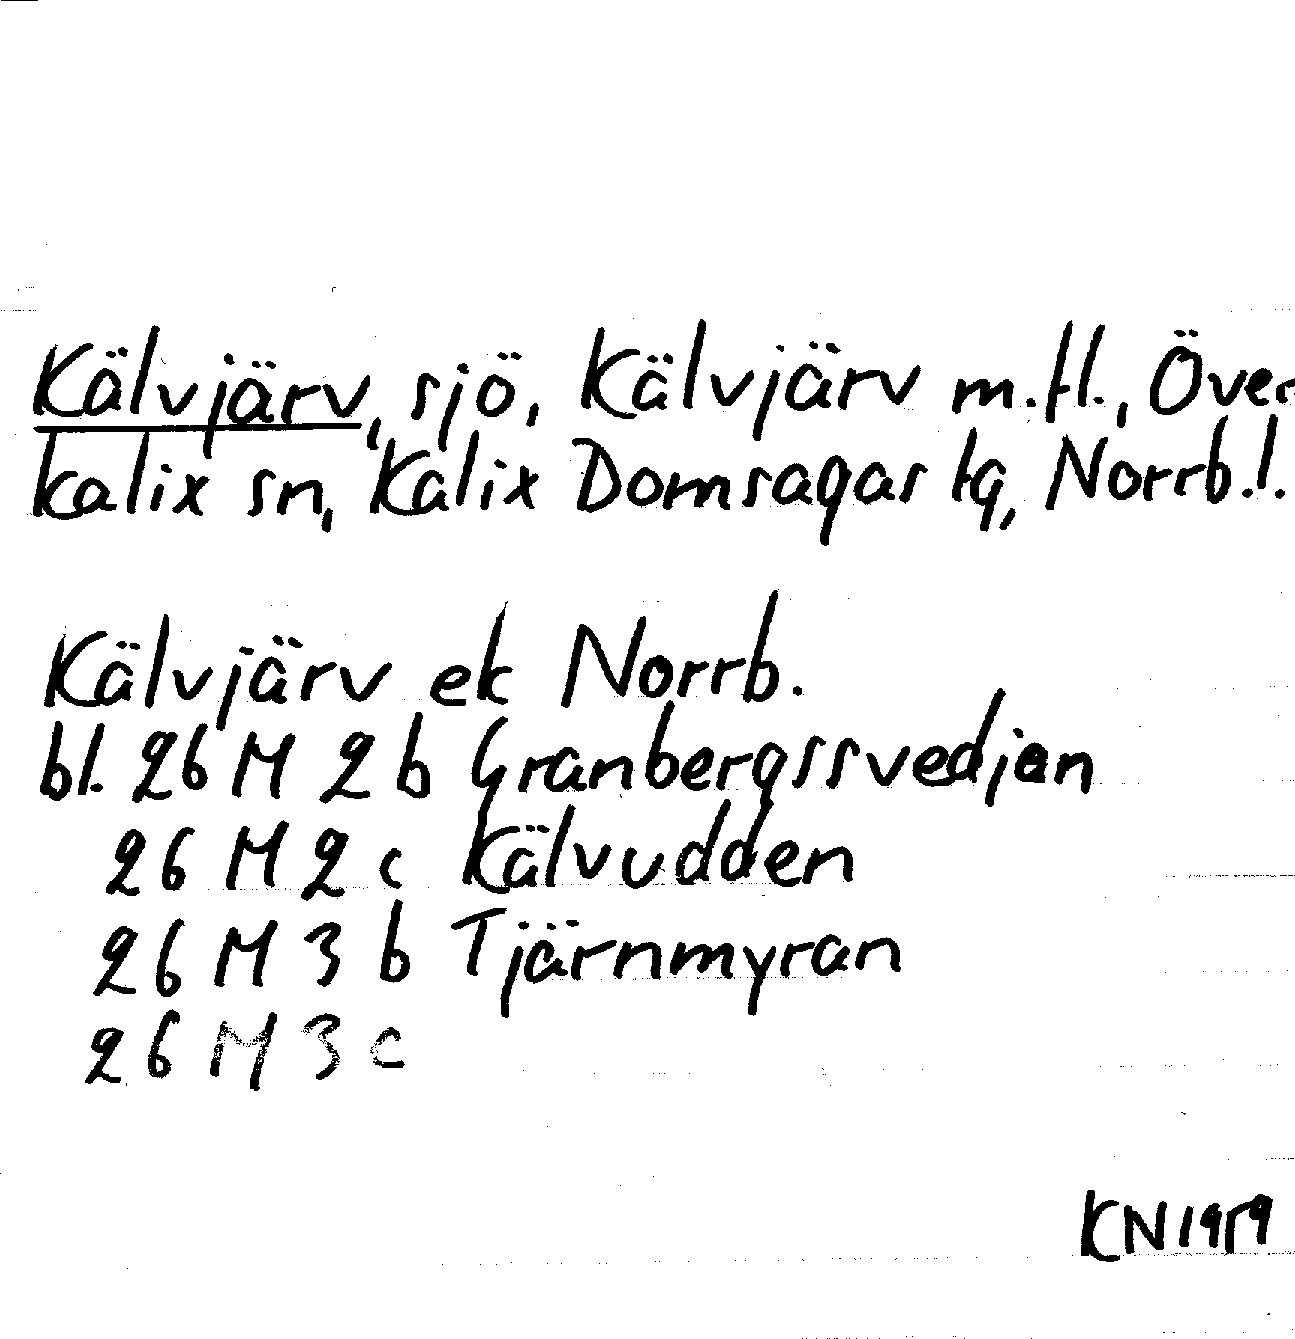 Kälvjärv, sjö, Kälvjärv m.fl., Över
kalix sn, Kalix Domsagas tg, Norrb.l.
Kälvjärv ek Norrb.
bl. 26 M 2 b Granbergssvedjan
26 M 2 c Kälvudden
26 M 3 b Tjärnmyran
26 M 3 c
KN